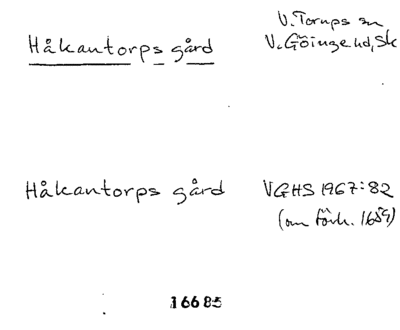 Håkantorps gård
V. Torups sn
V. Göinge hd, Sk
Håkantorps gård
VGHS 1967:82
(om förh. 1659)
16685